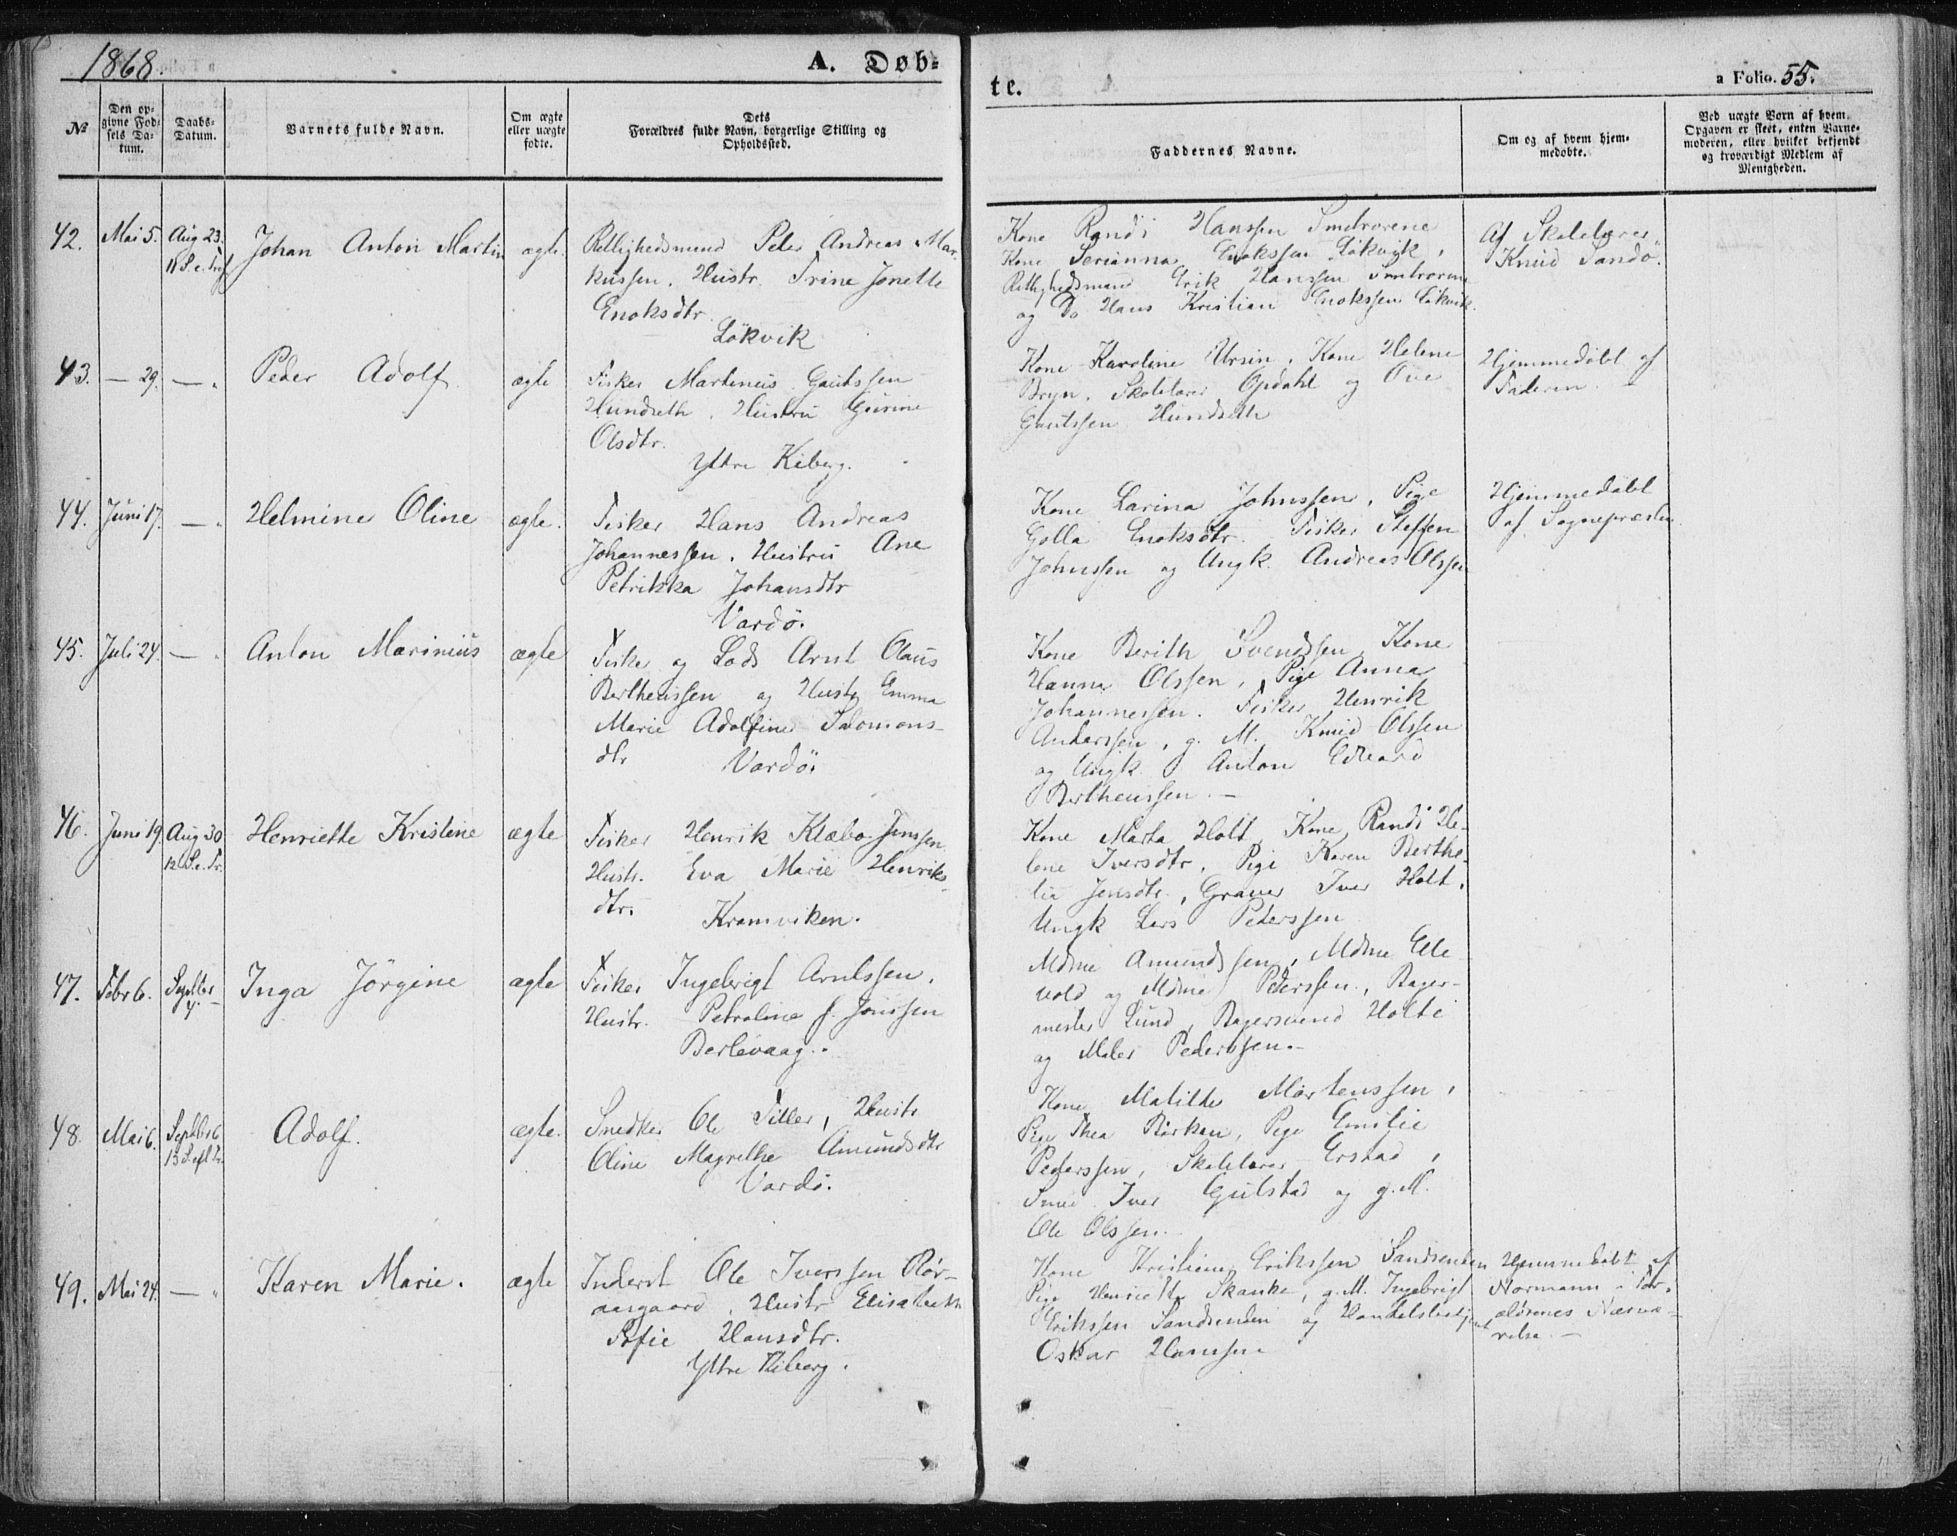 1868.
A. Døb-
te.
a Folio. 55.
No
Den op-
givne Fød-
sels Da-
tum.
Daabs-
Datum.
Barnets fulde Navn.
Om ægte
eller uægte
fødte.
Dets
Forældres fulde Navn, borgerlige Stilling og
Opholdssted.
Faddernes Navne.
Om og af hvem hjem-
medøbte.
Ved uægte Børn af hvem
Opgaven er skeet, enten Barne-
moderen, eller hvilket bekjendt
og troværdigt Medlem af
Menigheden.
42.
Mai 5.
Aug 23.
11 S. e. Tref
Johan Anton Martin
ægte.
Rettighedsmand Peter Andreas Mar-
kussen, Hustr. Trine Jonette
Enoksdtr.
Løkvik
Kone Randi Hanssen Smelrorene
Kone Serianna Enokssen Løkvik,
Rettighedsmand Erik Hanssen Smelrorene
og Do Hans Kristian Enokssen Løkvik.
Af Skolelærer
Knud Sandø.
43.
— 29.
— "
Peder Adolf.
ægte
Fisker Martinus Gautssen
Hundseth, Hustru Gurine
Olsdtr.
Yttre Kiberg.
Kone Karoline Ursin, Kone Helene
Bryn, Skolelærer Opdahl og Ove
Gautssen Hundseth
Hjemmedøbt af
Faderen. —
44.
Juni 17.
— "
Helmine Oline
ægte.
Fisker Hans Andreas
Johannessen, Hustru Ane
Petrikka Johansdtr
Vardø.
Kone Larina Johnssen, Pige
Golla Enoksdtr. Fisker Steffen
Johnssen og Ungk. Andreas Olssen
Hjemmedøbt
af Sognepræsten
45.
Juli 24.
— "
Anton Marinius
ægte
Fisker og Lods Arnt Olaus
Bertheussen og Hustr Emma
Marie Adolfine Salomons-
dtr
Vardø.
Kone Berith Svendssen, Kone
Hanna Olssen, Pige Anna
Johannessen. Fisker Henrik
Anderssen, g. M. Knud Olssen
og Ungk. Anton Edvard
Bertheussen. —
46.
Juni 19.
Aug 30
12 S. e. Tr.
Henriette Kristine
ægte
Fisker Henrik Klæbo Jenssen
Hustr. Eva Marie Henriks-
dtr.
Kramviken.
Kone Marta Holt, Kone Randi He-
lene Iversdtr, Pige Karen Berthe-
lie Jensdtr., Graver Iver Holt,
Ungk Lars Peterssen
47.
Febr 6.
Septbr
4. —
Inga Jørgine
ægte
Fisker Ingebrigt Arntssen,
Hustr. Petroline f. Jonssen
Berlevaag.
Mdme Amundssen, Mdme Elle
vold og Mdme Pederssen, Bager-
mester Lund, Bagersvend Holte
og Maler Pederssen. —
48.
Mai 6.
Septbr 6
13 S. efl Tr.
Adolf.
ægte.
Snedker Ole Tiller, Hustr
Oline Magrethe Amundsdtr
Vardø.
Kone Matilde Mortenssen,
Pige Thea Børken, Pige Emilie
Pederssen, Skolelærer Erstad,
Smed Iver Gulstad og g. M.
Ole Olssen.
49.
Mai 24.
— "
Karen Marie.
ægte
Inderst Ole Iverssen Rør-
aasgaard, Hustr Elisabeth
Sofie Hansdtr.
Yttre Kiberg.
Kone Kristiane Erikssen Sandsenden
Pige Henriette Skanke, g. M. Ingebrigt
Erikssen Sandsenden og Handelsbetjent
Oskar Hanssen
Hjemmedøbt af
Normann i For-
ældrenes Nærvæ-
relse. —